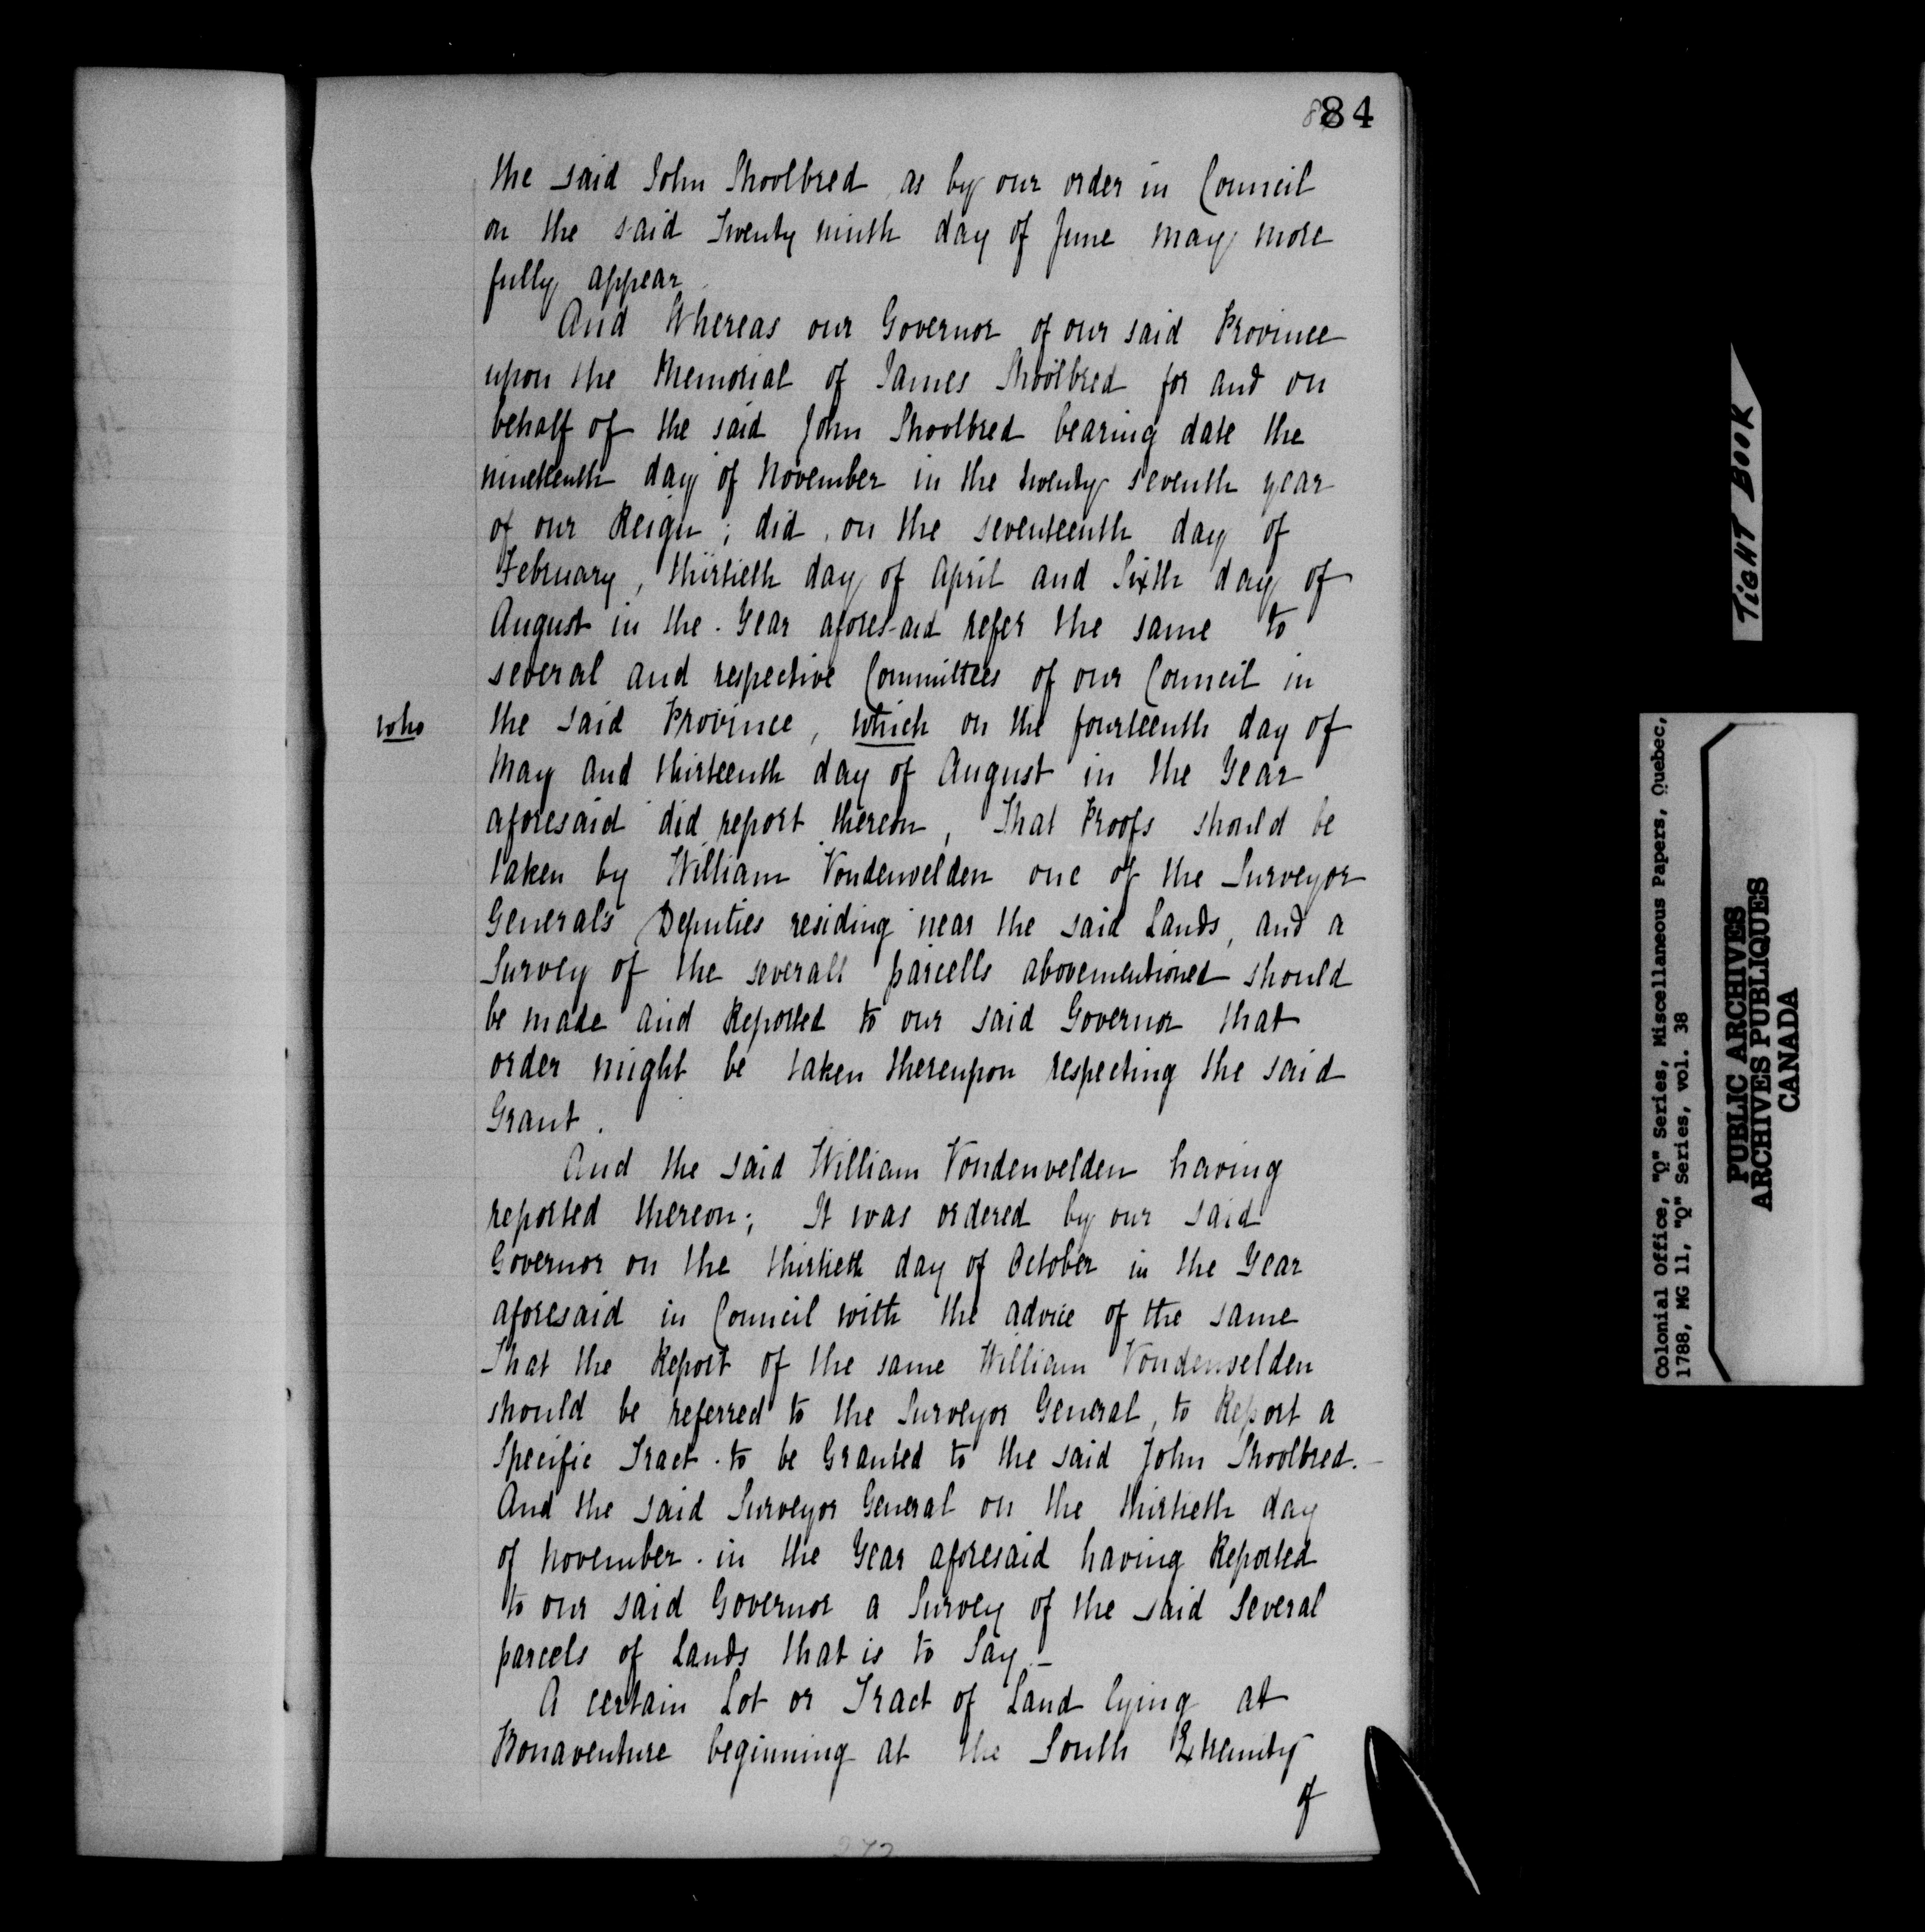 84
the said John Shoolbred as by our order in Council
on the said Twenty ninth day of June may more
fully appear.
And Whereas our Governor of our said Province
upon the Memorial of James Shoolbred for and on
behalf of the said John Shoolbred bearing date the
nineteenth day of November in the twenty seventh year
of our Reign; did, on the seventeenth day of
February, thirtieth day of April and Sixth day of
August in the Year aforesaid refer the same to
several and respective Committees of our Council in
who
the said Province, which on the fourteenth day of
May and thirteenth day of August in the Year
aforesaid did report thereon, That Proofs should be
taken by William Vondenvelden one of the Surveyor
General's Deputies residing near the said Lands, and a
Survey of the severall parcells abovementioned should
be made and Reported to our said Governor that
order might be taken thereupon respecting the said
Grant.
And the said William Vondenvelden having
reported thereon; It was ordered by our said
Governor on the thirtieth day of October in the Year
aforesaid in Council with the advice of the same
That the Report of the same William Vondenvelden
should be referred to the Surveyor General, to Report a
Specific Tract to be Granted to the said John Shoolbred.
And the said Surveyor General on the thirtieth day
of November in the Year aforesaid having Reported
to our said Governor a Survey of the said Several
parcels of Lands that is to Say.—
A certain Lot or Tract of Land lying at
Bonaventure beginning at the South Extremity
of
TIGHT BOOK
Colonial Office, "Q" Series, Miscellaneous Papers, Quebec,
1788, MG 11, "Q" Series, vol. 38
PUBLIC ARCHIVES
ARCHIVES PUBLIQUES
CANADA